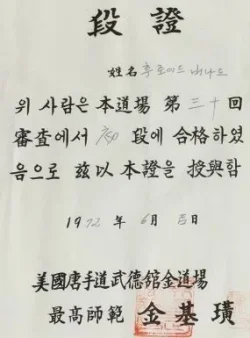 段證
姓名 후로이드 버나드
위 사람은 本道場 第三十回
審査에서 初 段에 合格하였
음으로 玆以 本證을 授與함
1972 年 6月 日
美國唐手道武德館金道場
最高師範 金基璜